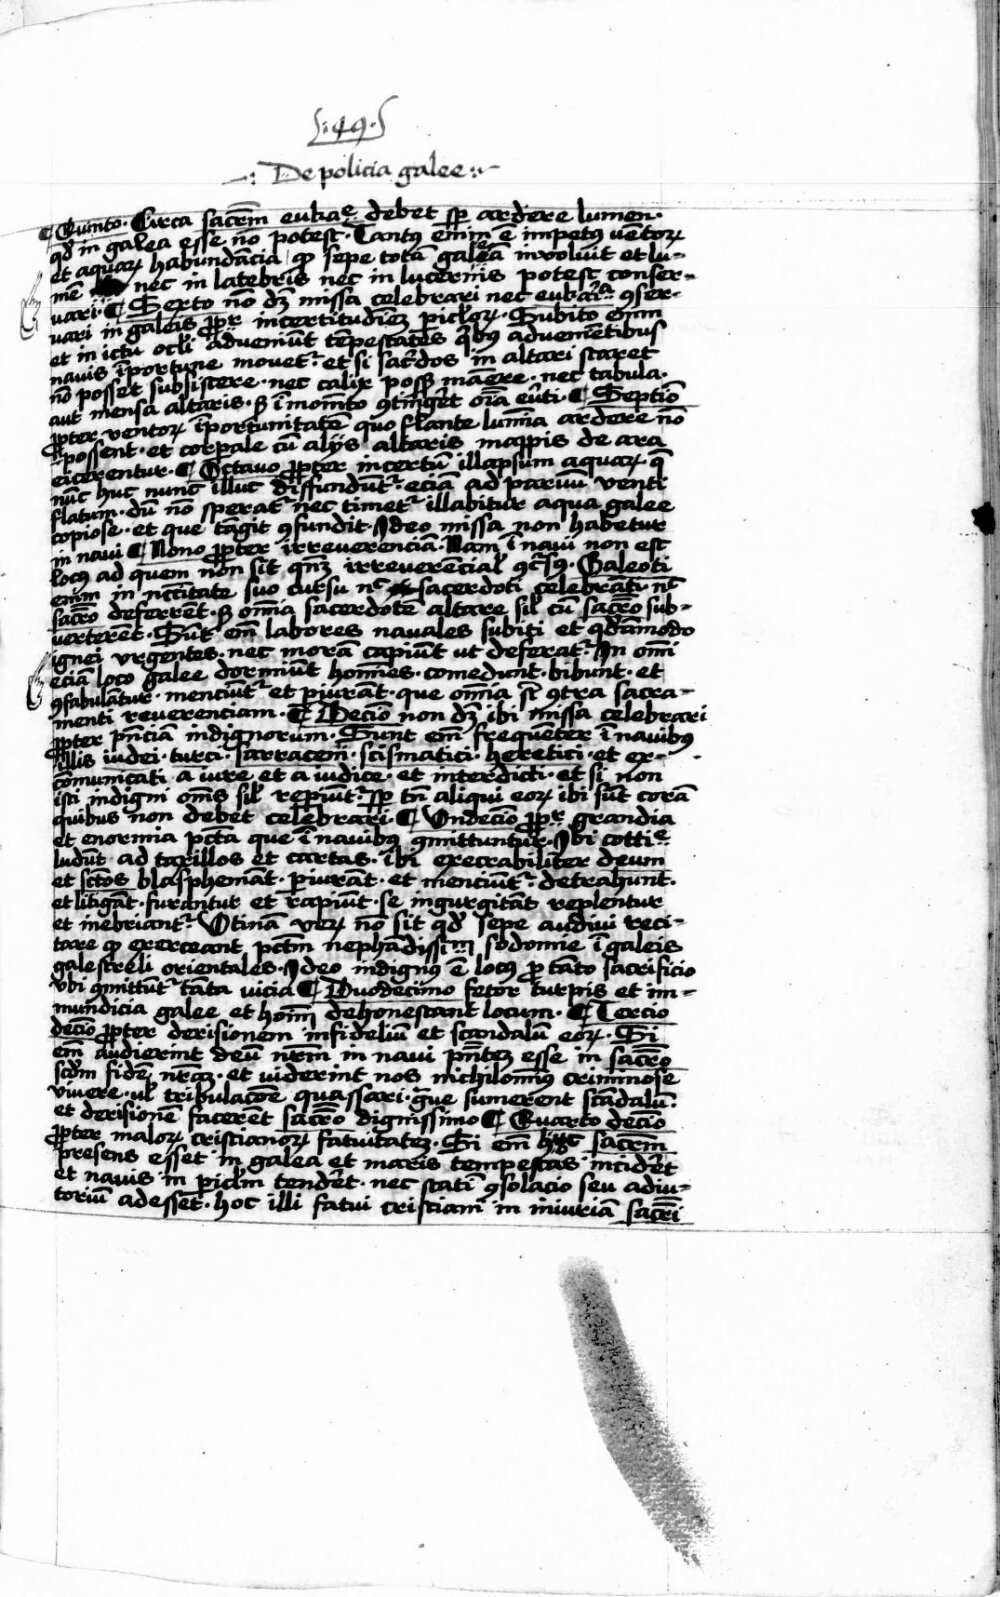 .49.
De policia galee
¶ Quinto. Circa sacrm̄ eukaͤ debet sp̄ ardere lumen.
qd̄ in galea esse nō potest. Tantꝰ enim ē impetꝰ vētoꝝ
et aquaꝝ habundācia / ꝙ sepe totā galeā involuit et lu-
mē nec in latebris nec in lucernis potest conser-
vari. ¶ Sexto nō dꝫ missa celebrari nec ꝯser-
vari in galeis ꝓpt̄ incertitudīeꝫ pic̄loꝝ. Subito enim
et in ictu oc̄li adveniūt tēpestates q̄bꝰ advenietibus
navis īportune movetᷣ. et si sac̄dos in altari staret
nō posset subsistere. nec calix possꝫ manere. nec tabula.
aut mensa altaris. sꝫ ī momēto ꝯtinḡet oīa ēūti. ¶ Septīo
ꝓpter ventoꝝ īportunitate quo flante lumīa ardere nō
possent. et corꝑale cū alijs altaris mappis de ara
eicerentur. ¶ Octauo ꝓpter incertū illapsum aquaꝝ. q̄
nūc huc nunc illuc diffundūtᷣ. eciā ad parvū venti
flatum. dū nō speratᷣ nec timetᷣ illabitur aqua galee
copiose. et que tāgit ꝯfundit. Ideo missa non habetur
in navi ¶ Nono ꝓpter irreverenciā. Nam ī navi non est
locꝰ ad quem non sit qn̄qꝫ irreverēcial ꝯc̄sꝰ. Galeoti
enim in nc̄citate suo cursu n̄ sacerdoti celebrāti n̄
sacr̄o deferrēt. sꝫ omīa sacerdotē altare sil̄ cū sacr̄o sub-
verterēt. Sūt em̄ labores navales subiti et qd̄ammodo
ignei vrgentes. nec morā capiūt ut deferatᷣ. In omī
eciā loco galee dormiūt homīes. comedunt. bibunt. et
ꝯfabulātur. menciūtᷣ et ꝑiurāt. que omīa sūt ꝯtra sacra-
menti reverenciam. ¶ Decīo non dꝫ ibi missa celebrari
ꝓpter pn̄tiā indignorum. Sunt em̄ frequēter ī navibꝰ
illis iudei. turci. sarraceni. scismatici. heretici. et ex-
cōmunicati a iure et a iudice. et interdicti. et si non
isti indigni om̄s sil̄ reꝑiūtᷣ. sp̄ tn̄ aliqui eoꝝ ibi sūt corā
quibus non debet celebrari. ¶ Vndecīo ꝓpt̄ grandia
et enormia pc̄ta que ī navibꝰ ꝯmittuntur. Ibi cottiᵉ
ludūt ad taxillos et cartas. ibi execrabiliter deum
et sc̄tos blasphemāt. ꝑiurāt. et menciūtᷣ. detrahunt.
et litigāt. furantur et rapiūt. se ingurgitāt replentur
et inebriantᷣ. Vtinā veꝝ nō sit qd̄ sepe audivi reci-
tare ꝙ exerceant pctm̄ nephādissim̄ sodomie ī galeis
galestreli orientales. Ideo indignꝰ ē locꝰ ꝓ tāto sacrificio
vbi ꝯmittūtᷣ tāta vicia ¶ Duodecimo fetor turpis et im-
mundicia galee et hoīm dehonestant locum. ¶ Tercio
decīo ꝓpter derisionem infideliū et scandalū eoꝝ. Si
em̄ audierint deū nr̄m in navi pn̄teꝫ esse in sacr̄o
scd̄m fidē nr̄aꝫ. et viderint nos nichilomīꝰ crimīose
vivere. vl̄ tribulacōne quassari. ḡne sumerent scādalū.
et derisionē facerēt sacr̄o dignissimo ¶ Quarto decīo
ꝓpter maloꝝ cristianoꝝ fatuitateꝫ. Si em̄ huc sacrm̄
presens esset in galea et maris tempestas intid̄et
et navis in pic̄lm tend̄et. nec statī ꝯsolacio seu adiu-
toriū adesset. hoc illi fatui cristiani in iniuriā sacr̄i